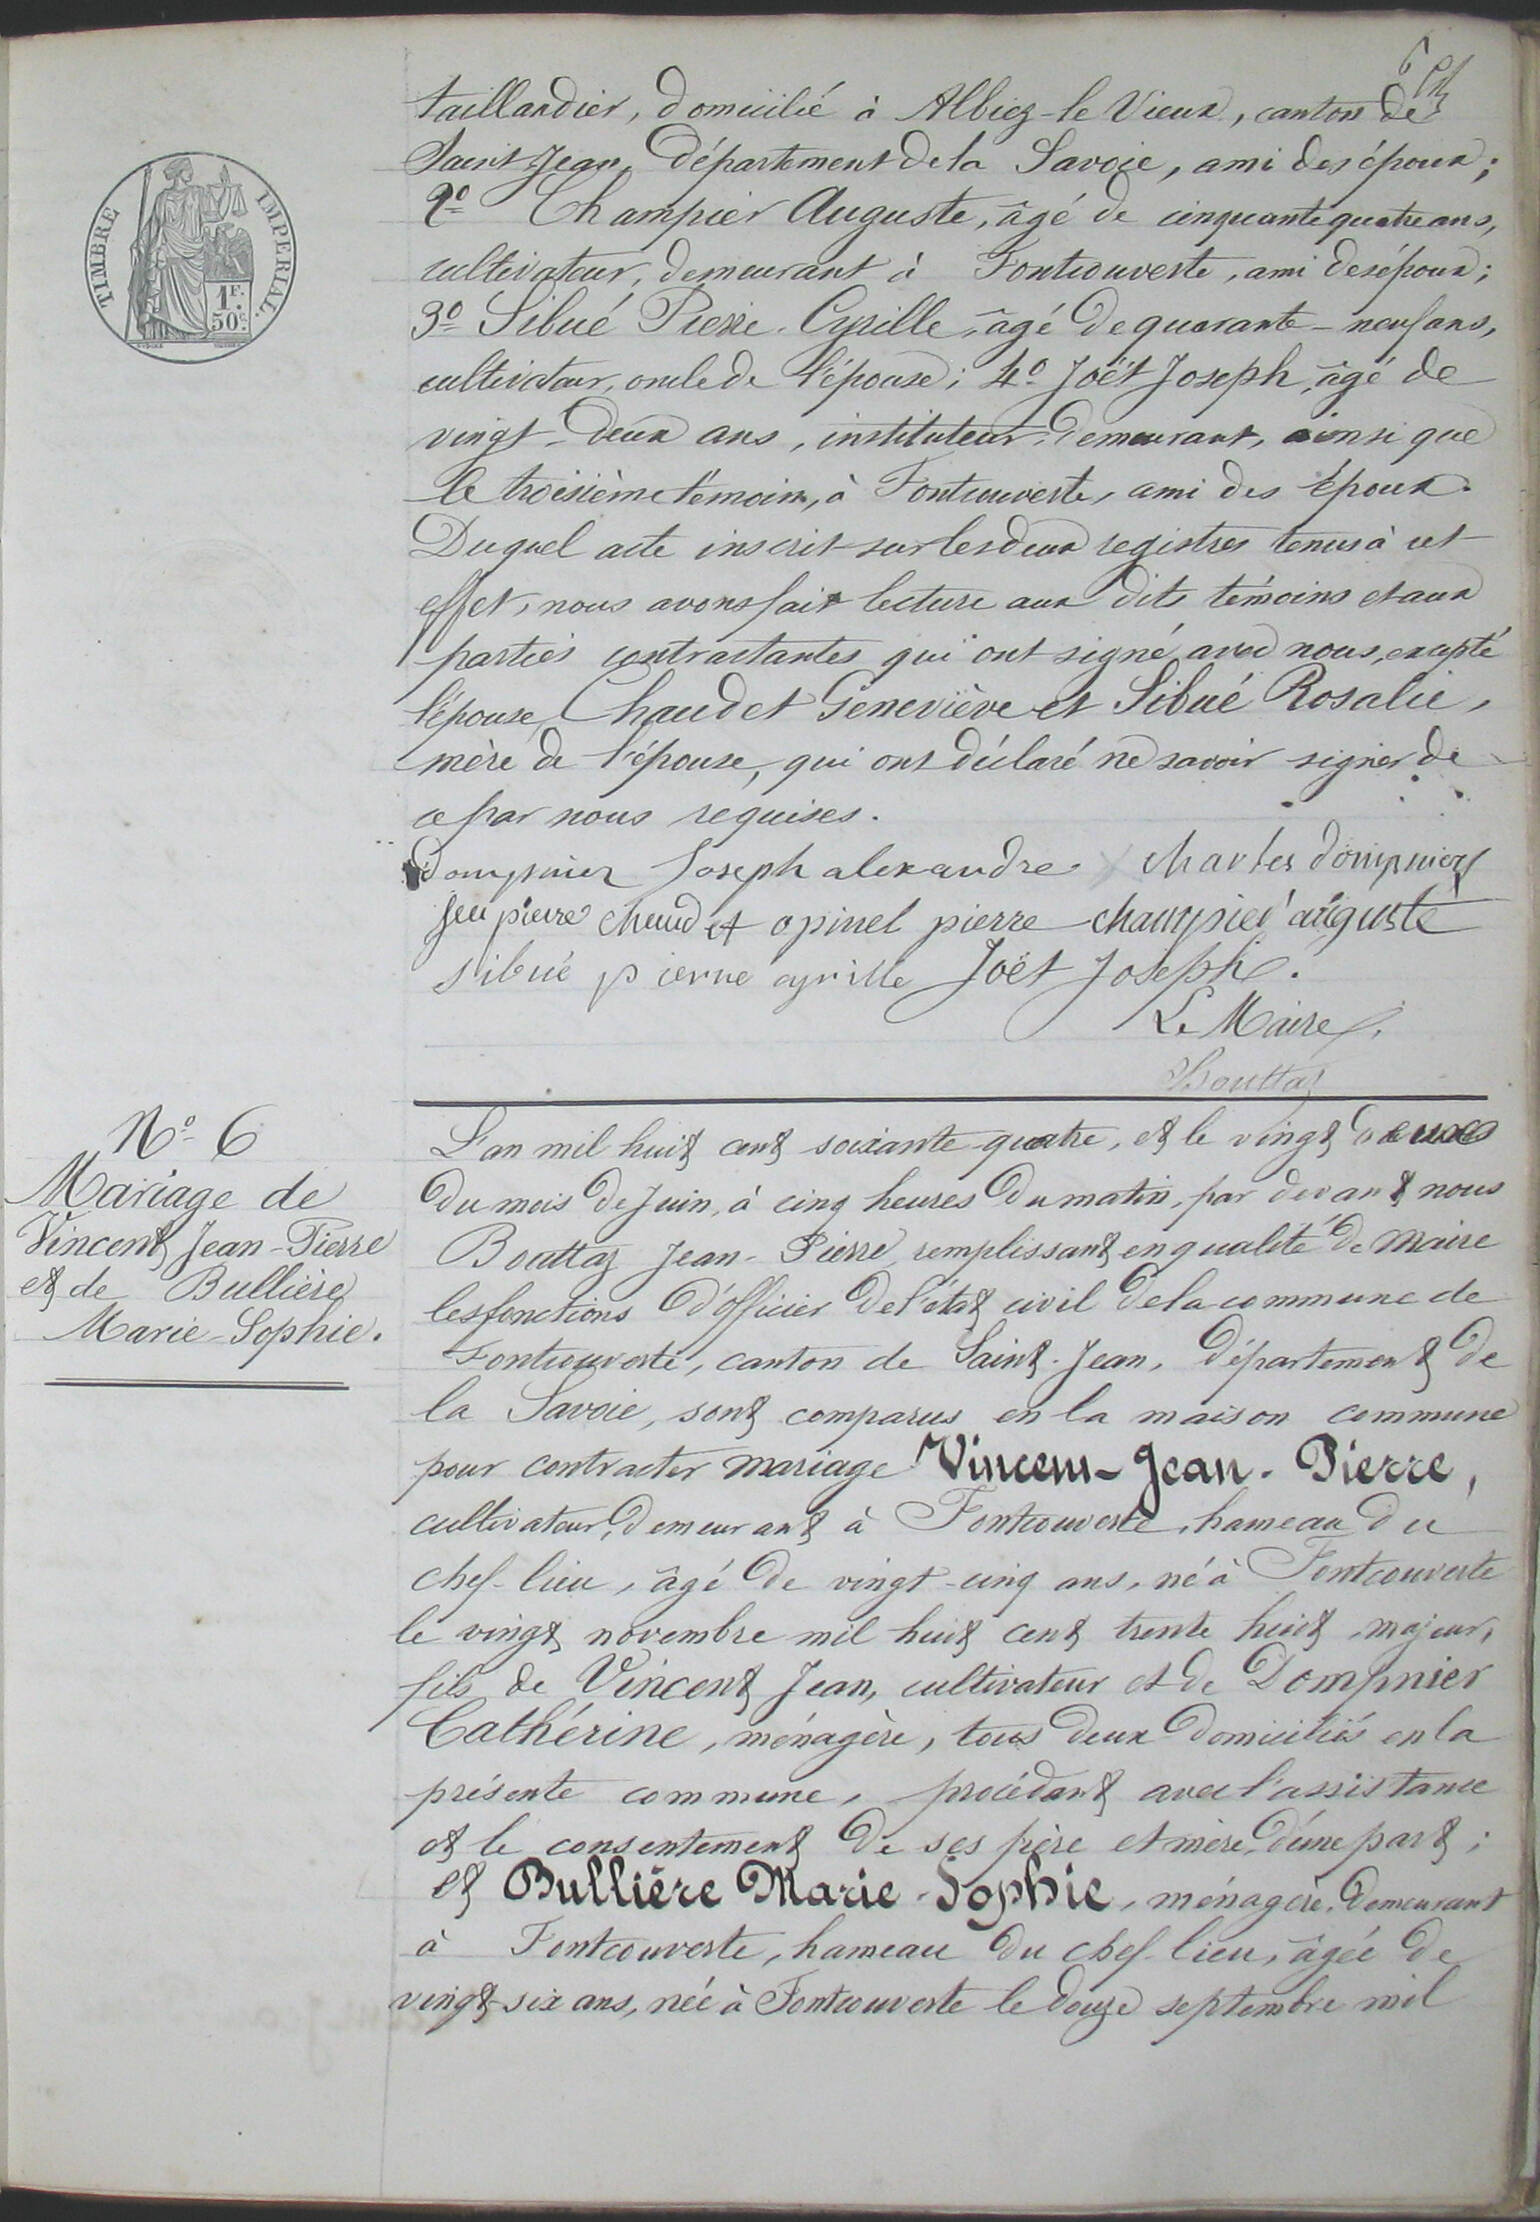 6
TIMBRE IMPERIAL
1F.
50c
taillandier, domicilié à Albiez-le Vieux, canton de
Saint-Jean, département de la Savoie, ami des époux;
2º Champier Auguste, âgé de cinquante quatre ans,
cultivateur, demeurant à Fontcouverte, ami des époux;
3º Sibué Pierre Cyrille, âgé de quarante-neuf ans,
cultivateur, oncle de l'épouse; 4º Joët Joseph, âgé de
vingt-deux ans, instituteur, demeurant, ainsi que
le troisième témoin, à Fontcouverte, ami des époux.
Duquel acte inscrit sur les deux registres tenus à cet
effet, nous avons fait lecture aux dits témoins et aux
parties contractantes qui ont signé avec nous, excepté
l'épouse, Chaudet Geneviève et Sibué Rosalie,
mère de l'épouse, qui ont déclaré ne savoir signer de
ce par nous requises.
Dompnier Joseph alexandre charles dompnier
jeu pierre chaudet opinel pierre champier auguste
sibué pierre cyrille Joët Joseph.
Le Maire,
Bouttaz
Nº 6
Mariage de
Vincent Jean-Pierre
et de Bullière
Marie-Sophie.
L'an mil huit cent soixante-quatre, et le vingt deux
du mois de Juin, à cinq heures du matin, par devant nous
Bouttaz Jean-Pierre, remplissant en qualité de maire
les fonctions d'officier de l'état civil de la commune de
Fontcouverte, canton de Saint-Jean, département de
la Savoie, sont comparus en la maison commune
pour contracter mariage Vincent-Jean-Pierre,
cultivateur, demeurant à Fontcouverte, hameau du
chef-lieu, âgé de vingt-cinq ans, né à Fontcouverte
le vingt novembre mil huit cent trente huit, majeur,
fils de Vincent Jean, cultivateur et de Dompnier
Cathérine, ménagère, tous deux domiciliés en la
présente commune, procédant avec l'assistance
et le consentement de ses père et mère, d'une part;
et Bullière Marie-Sophie, ménagère, demeurant
à Fontcouverte, hameau du chef-lieu, âgée de
vingt-six ans, née à Fontcouverte le douze septembre mil